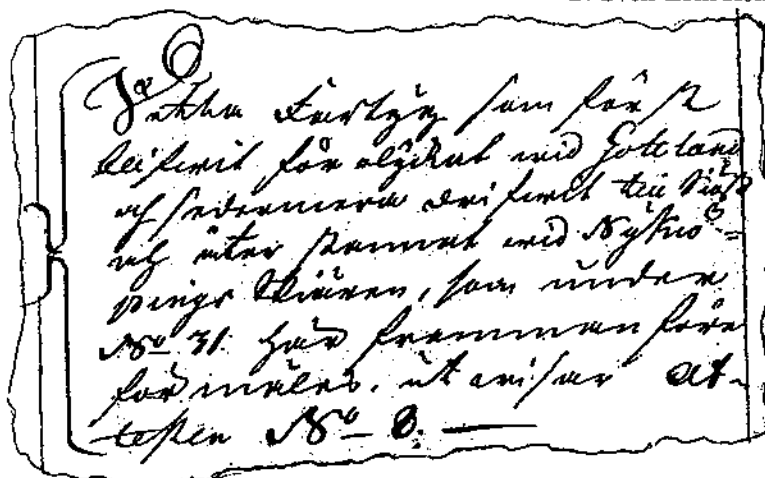 Detta Fartyg som först
blifwit förolyckat wid Gottland
och sedermera drifwit till Siöß
och åter strannat wid Nykiö-
pings Skiären, som under
No 31. här framman före
förmäles, utwisar At-
testen No 8.